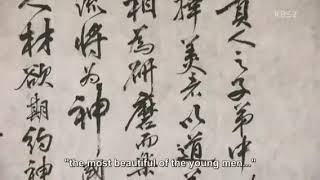 KBS2
人之子弟中
擇美者以道義
相為研磨而樂
流將為神國
人材欲期約神
"the most beautiful of the young men..."